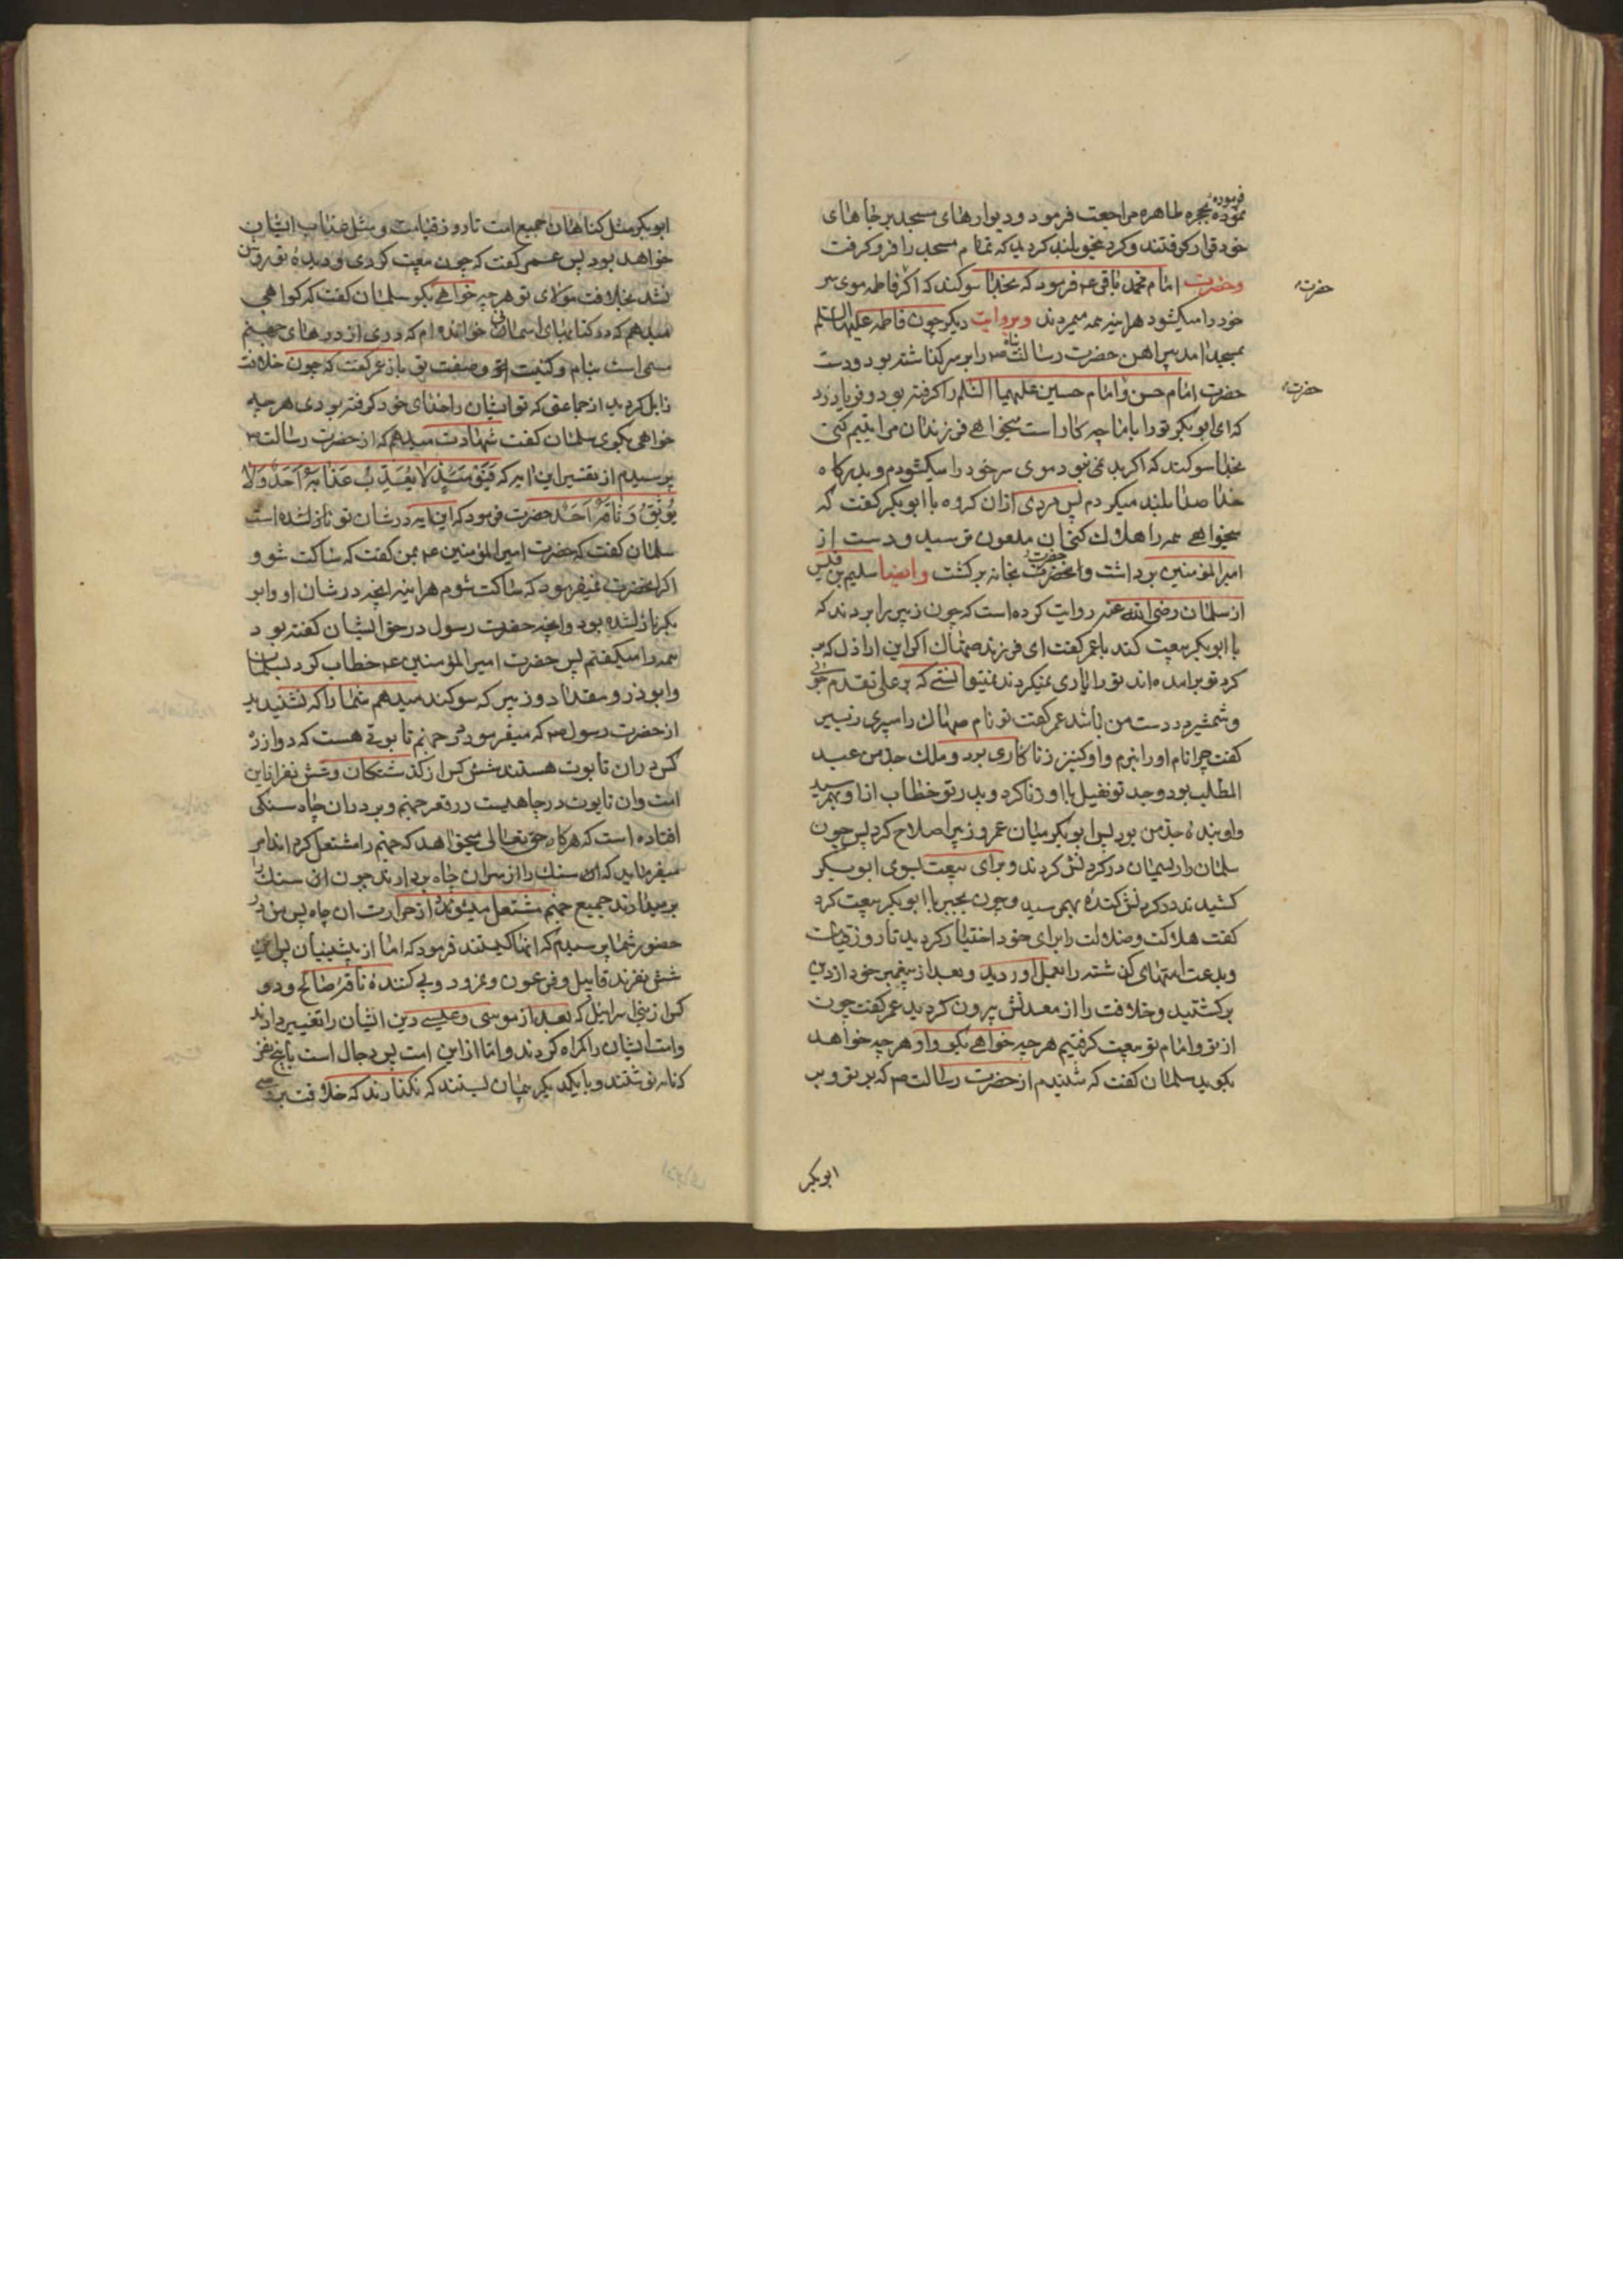 فرموده
نموده بحجره طاهره مراجعت فرمود و دیوارهای مسجد بر جاهای
خود قرار کرفتند و کرد بلند کردید که تمام مسجد را فرو کرفت
وحضرت امام محمد باقر ع فرمود که بخدا سوکند که اکر فاطمه موی سر
حضرت
خود را میکشود هراینه همه میمردند وبروایت دیکر چون فاطمه علیها السلام
بمسجد امد پیراهن حضرت رسالت پناه ص را بر سر کذاشته بود و دست
حضرت امام حسن و امام حسین علیهما السلام را کرفته بود و فریاد زد
حضرت
که ای ابو بکر تو را با ما چه کار است میخواهی فرزندان مرا یتیم کنی
بخدا سوکند که اکر بد نمی نبود موی سر خود را میکشودم و بدرکاه
خدا صدا بلند میکردم پس مردی ازان کروه با ابو بکر کفت که
میخواهی همه را هلاك کنی ان ملعون ترسید و دست از
امیر المؤمنین برداشت وانحضرت بخانه برکشت وایضا سلیم بن قیس
از سلمان رضی الله عنه روایت کرده است که چون زبیر را بردند که
با ابو بکر بیعت کند با عمر کفت ای فرزند صهاك اکر این اراذل که بر
کرد تو برامده اند تو را یاری نمیکردند نمیتوانستی که بر علی تقدم جوئی
و شمشیر در دست من باشد عمر کفت تو نام صهاك را میبری زبیر
کفت چرا نام او را نبرم و او کنیز زنا کاری بود و ملك جد من عبد
المطلب بود وجد تو نفیل با او زنا کرد و پدر تو خطاب از او بهم رسید
و او بنده جد من بود پس ابو بکر میان عمر و زبیر اصلاح کرد پس چون
سلمان را ریسمان در کردنش کردند و برای بیعت بسوی ابو بکر
کشیدند در کردنش کنده بهم رسید و چون بجبر با ابو بکر بیعت کرد
کفت هلاکت و ضلالت را برای خود اختیار کردید تا روز قیامت
و بدعت امتهای کذشته را بعمل اوردید و بعد از پیغمبر خود از دین
برکشتید و خلافت را از معدنش بیرون کردید عمر کفت چون
از تو و امام تو بیعت کرفتیم هر چه خواهی بکو و او هر چه خواهد
بکوید سلمان کفت که شنیدم از حضرت رسالت ص که بر تو و بر
ابو بکر
ابو بکر مثل کناهان جمیع امت تا روز قیامت و مثل عذاب ایشان
خواهد بود پس عمر کفت که چون بیعت کردی و دیده تو روشن
نشد بخلافت مولای تو هر چه خواهی بکو سلمان کفت که کواهی
میدهم که در کتابهای اسمانی خوانده ام که دری از درهای جهنم
مسمی است بنام و کنیت تو و صفت تو باز عمر کفت که چون خلافت
زایل کردید از جماعتی که تو ایشان را خدای خود کرفته بودی هر چه
خواهی بکوی سلمان کفت شهادت میدهم که از حضرت رسالت ص
پرسیدم از تفسیر این ایه که فَیَوْمَئِذٍ لَا یُعَذِّبُ عَذَابَهُ اَحَدٌ وَلَا
یُوثِقُ وَثَاقَهُ اَحَدٌ حضرت فرمود که این ایه در شان تو نازل شده است
سلمان کفت که حضرت امیر المؤمنین ع بمن کفت که ساکت شو و
اکر انحضرت نمیفرمود که ساکت شوم هراینه انچه در شان او و ابو
بکر نازل شده بود و انچه حضرت رسول در حق ایشان کفته بود
همه را میکفتم پس حضرت امیر المؤمنین ع خطاب کرد بسلمان
و ابوذر و مقداد و زبیر که سوکند میدهم شما را که نشنیدید
از حضرت رسول ص که میفرمود در جهنم تابوتی هست که دوازده
کس دران تابوت هستند شش کس از کذشتکان و شش نفر از این
امت و ان تابوت در چاهیست در قعر جهنم و بر دران چاه سنکی
افتاده است که هر کاه حق تعالی میخواهد که جهنم را مشتعل کرداند امر
میفرماید که ان سنك را از سر ان چاه بردارند چون ان سنك را
برمیدارند جمیع جهنم مشتعل میشود از حرارت ان چاه پس من در
حضور شما پرسیدم که انها کیستند فرمود که اما از پیشینیان پس ان
شش نفرند قابیل و فرعون و نمرود و پی کننده ناقه صالح و دو
کس از بنی اسرائیل که بعد از موسی و عیسی دین ایشان را تغییر دادند
و امت ایشان را کمراه کردند و اما از این امت پس دجال است با پنج نفر
که نامه نوشتند و با یکدیکر پیمان بستند که نکذارند که خلافت